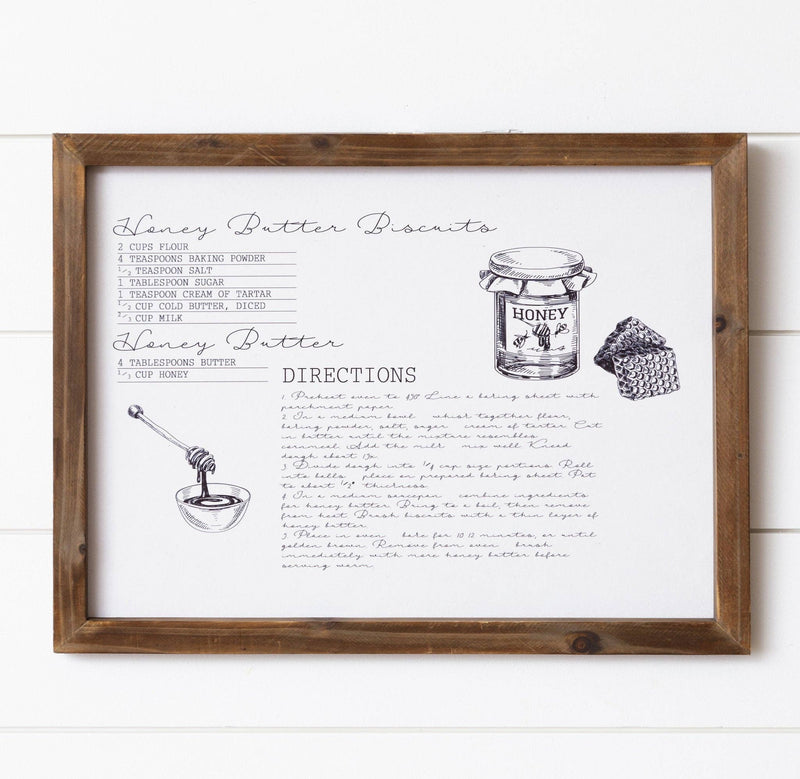 Honey Butter Biscuits
2 CUPS FLOUR
4 TEASPOONS BAKING POWDER
1/2 TEASPOON SALT
1 TABLESPOON SUGAR
1 TEASPOON CREAM OF TARTAR
1/2 CUP COLD BUTTER, DICED
2/3 CUP MILK
Honey Butter
4 TABLESPOONS BUTTER
1/3 CUP HONEY
HONEY
DIRECTIONS
1. Preheat oven to 450 Line a baking sheet with
parchment paper
2. In a medium bowl whisk together flour,
baking powder, salt, sugar cream of tartar Cut
in butter until the mixture resembles
cornmeal Add the milk mix well Knead
dough about
3 Divide dough into 1/4 cup size portions Roll
into balls place on prepared baking sheet Pat
to about 1/2" thickness
4 In a medium saucepan combine ingredients
for honey butter Bring to a boil, then remove
from heat Brush biscuits with a thin layer of
honey butter
5 Place in oven bake for 10 12 minutes, or until
golden brown Remove from oven brush
immediately with more honey butter before
serving warm